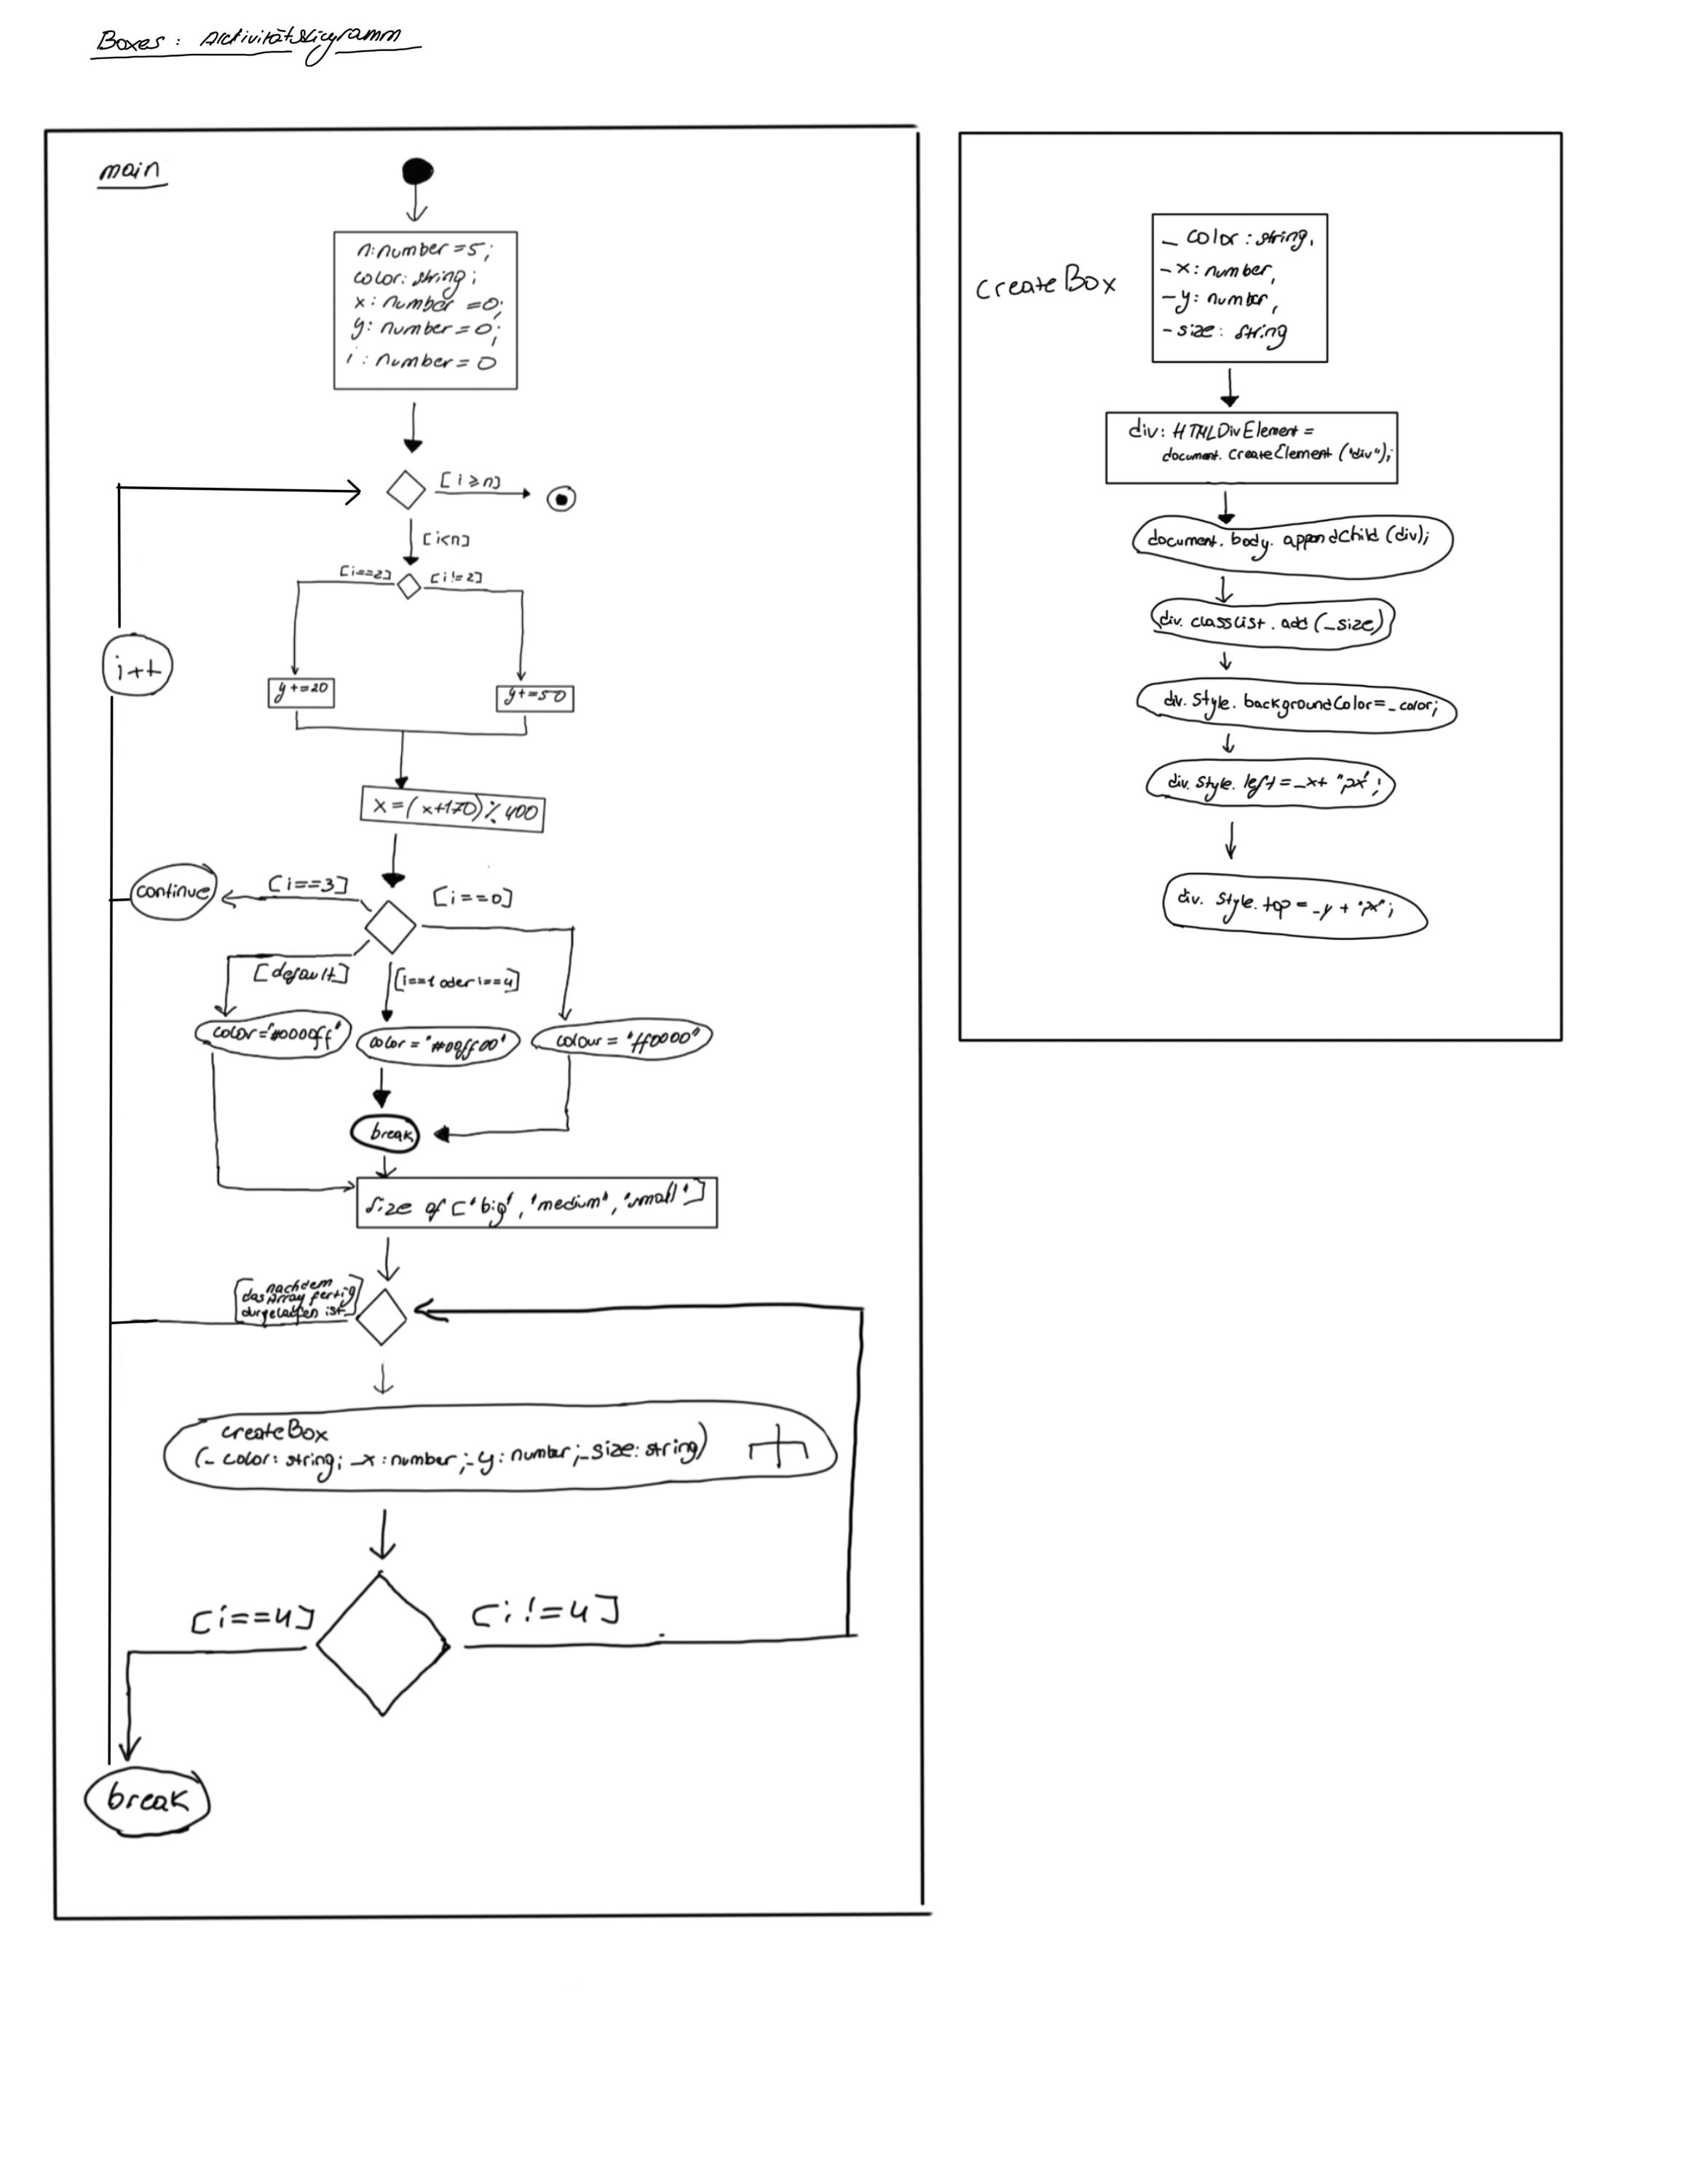 Boxes : Aktivitätsdiagramm
main
n:number = 5;
color: string;
x: number = 0;
y: number = 0;
i : number = 0
[i ≥ n]
[i<n]
[i==2]
[i!=2]
i++
y+=20
y+=50
x=(x+170)%400
continue
[i==3]
[i==0]
[default]
[i==1 oder i==4]
color="#0000ff"
color = "#00ff00"
colour = "ff0000"
break
size of ["big", "medium", "small"]
[nachdem
das Array fertig
durgelaufen ist]
createBox
(_color: string; _x: number; _y: number; _size: string)
[i==4]
[i!=4]
break
createBox
_ color : string,
_x: number,
_y: number,
_size: string
div: HTMLDivElement =
document. createElement ("div");
document. body. appendChild (div);
div. classList. add (_size)
div. style. backgroundColor=_color;
div. style. left = _x+ "px" ;
div. style. top = _y + "px";